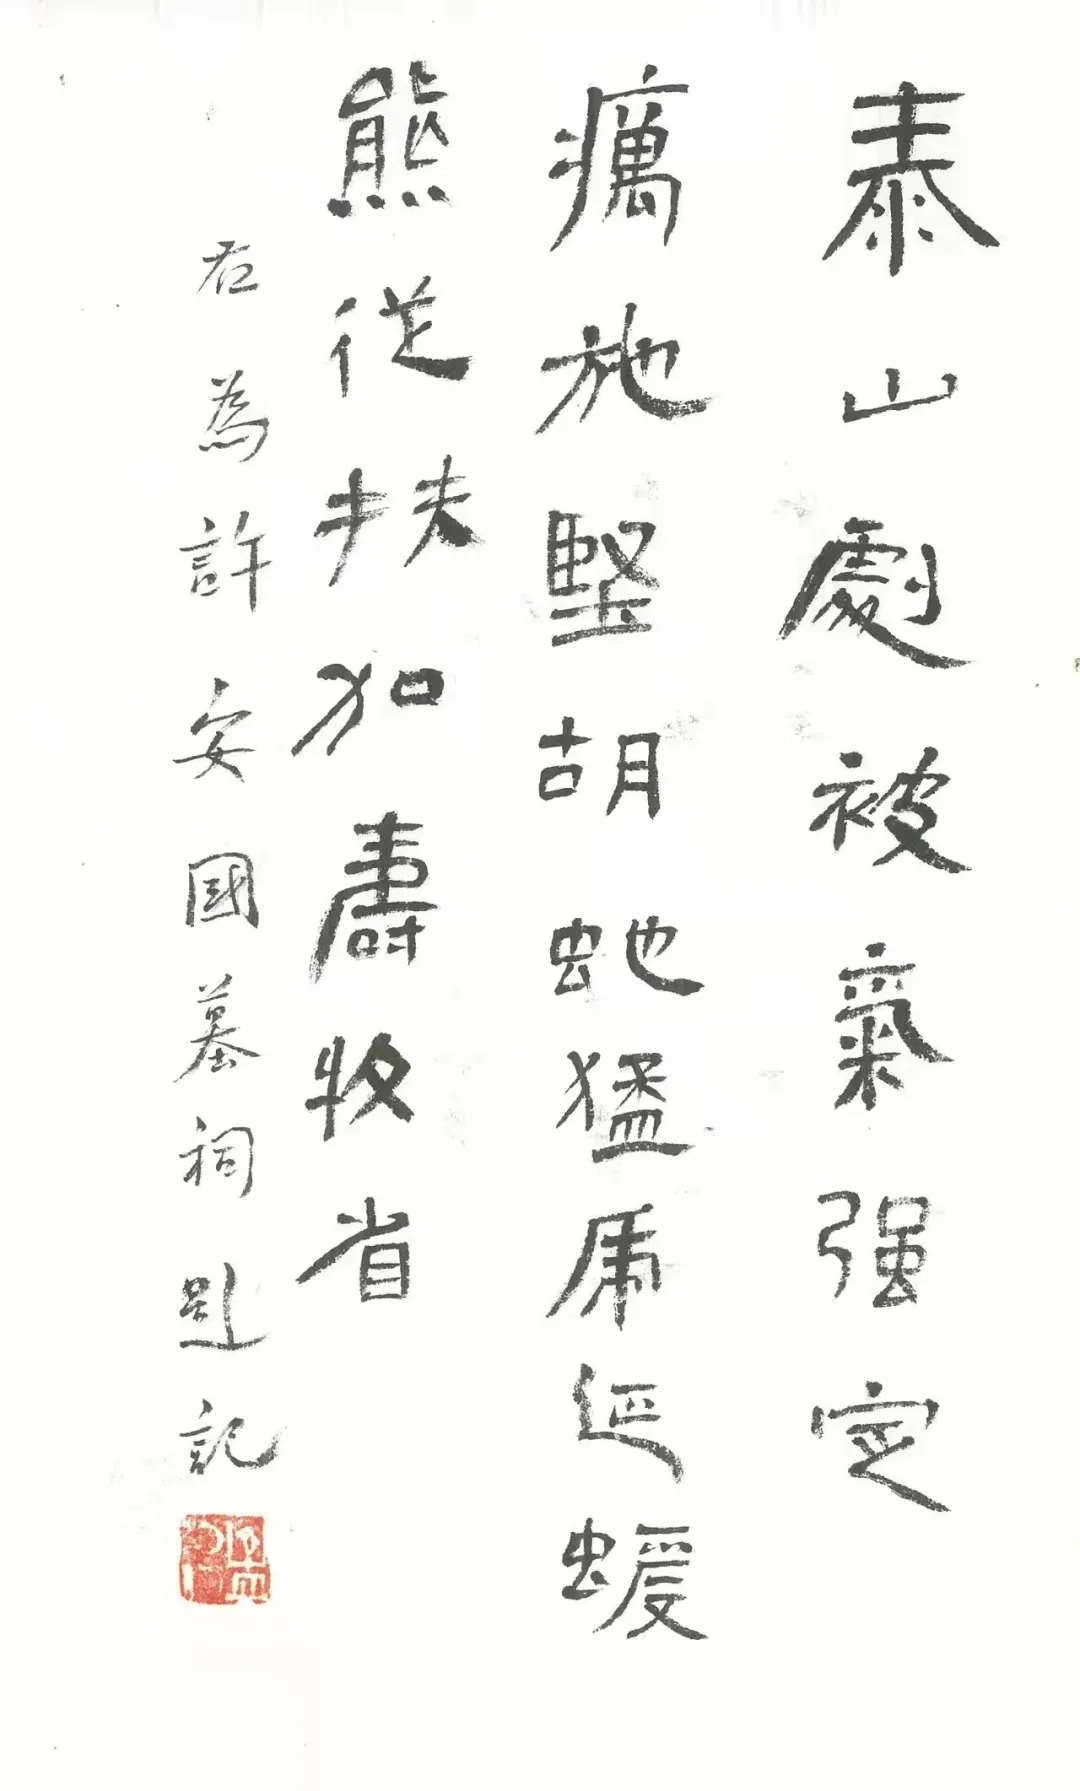 泰山劇被氣强定
癘施堅胡虵猛虎延蝯
熊從扶加壽牧省
右為許安國墓祠題記